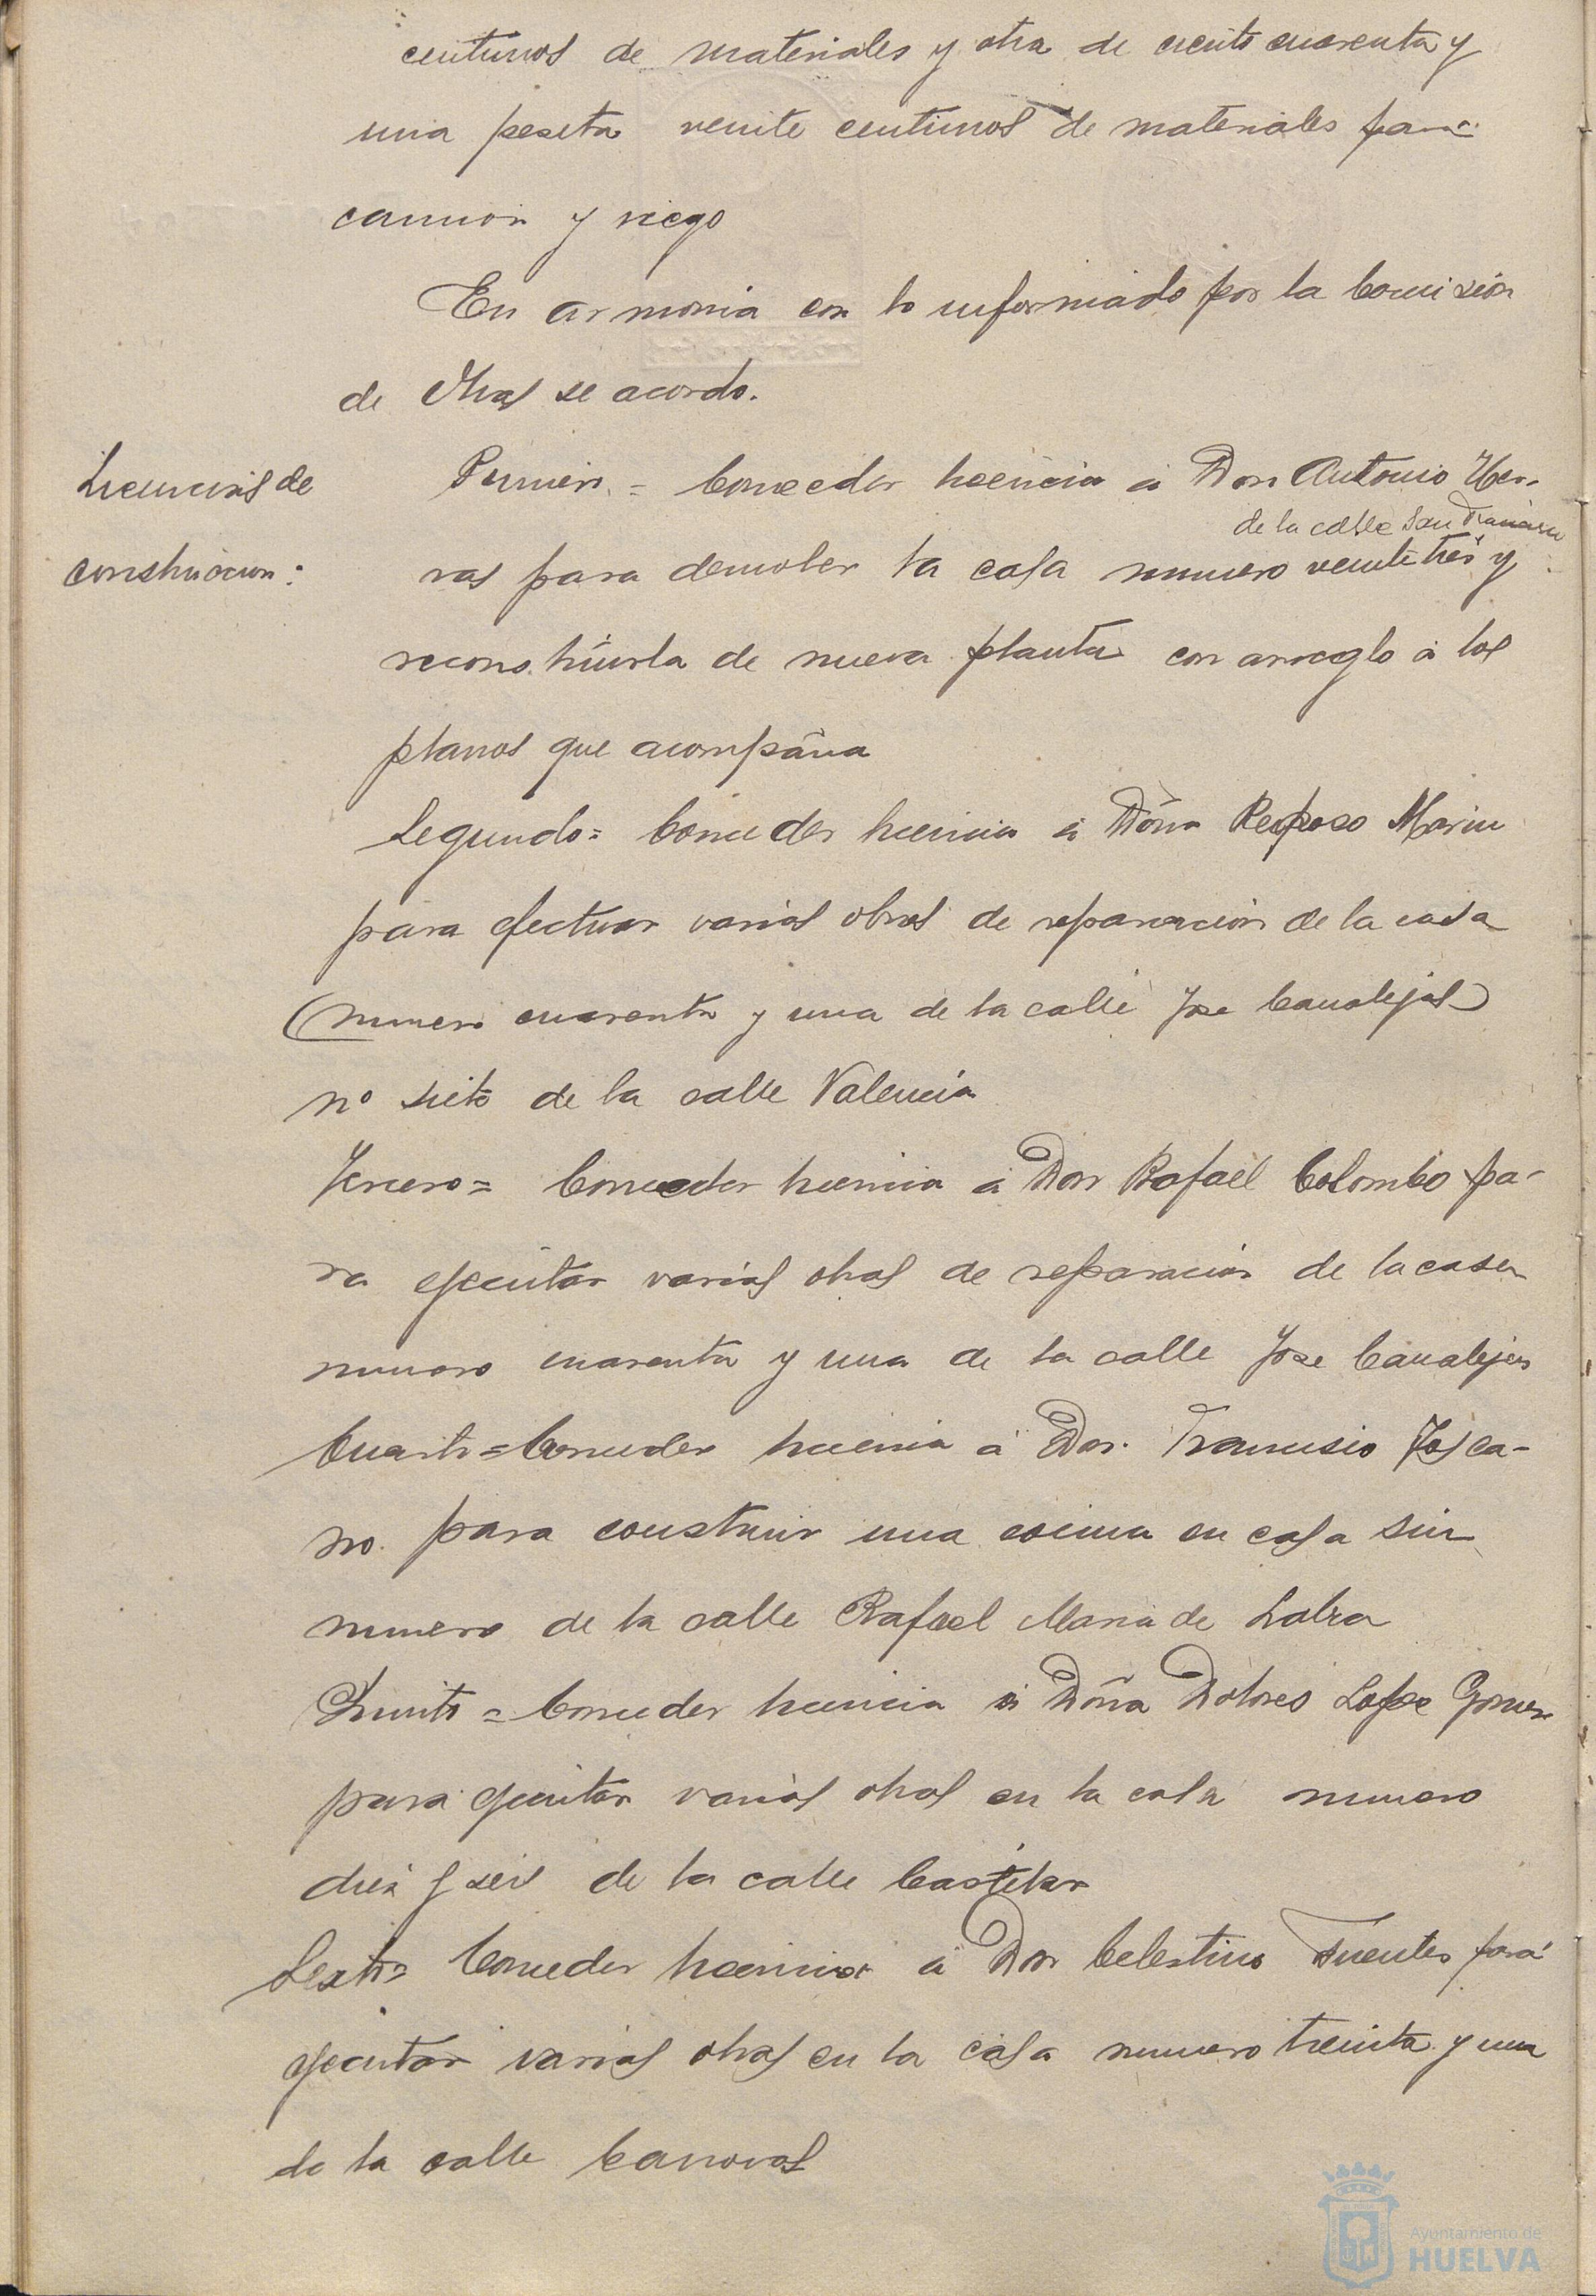 centimos de materiales y otra de ciento cuarenta y
una peseta veinte centimos de materiales para
camion y riego
En armonia con lo informado por la Comisión
de Obras se acordo.
Licencias de
construccion:
Primero = Conceder licencia á Don Antonio Her-
de la calle San Francisco
ras para demoler la casa numero veintitres y
reconstruirla de nueva planta con arreglo á los
planos que acompaña
Segundo = Conceder licencia á Doña Reposo Marin
para efectuar varias obras de reparacion de la casa
(numero cuarenta y una de la calle Jose Canalejas)
nº siete de la calle Valencia
Tercero = Conceder licencia á Don Rafael Colombo pa-
ra ejecutar varias obras de reparacion de la casa
numero cuarenta y una de la calle Jose Canalejas
Cuarto = Conceder licencia á Don Francisco Tosca-
no para construir una cocina en casa sin
numero de la calle Rafael Maria de Labra
Quinto = Conceder licencia á Doña Dolores Lopez Gomez
para ejecutar varias obras en la casa numero
diez y seis de la calle Castelar
Sexto = Conceder licencia á Don Celestino Fuentes para
ejecutar varias obras en la casa numero treinta y una
de la calle Canovas
Ayuntamiento de
HUELVA